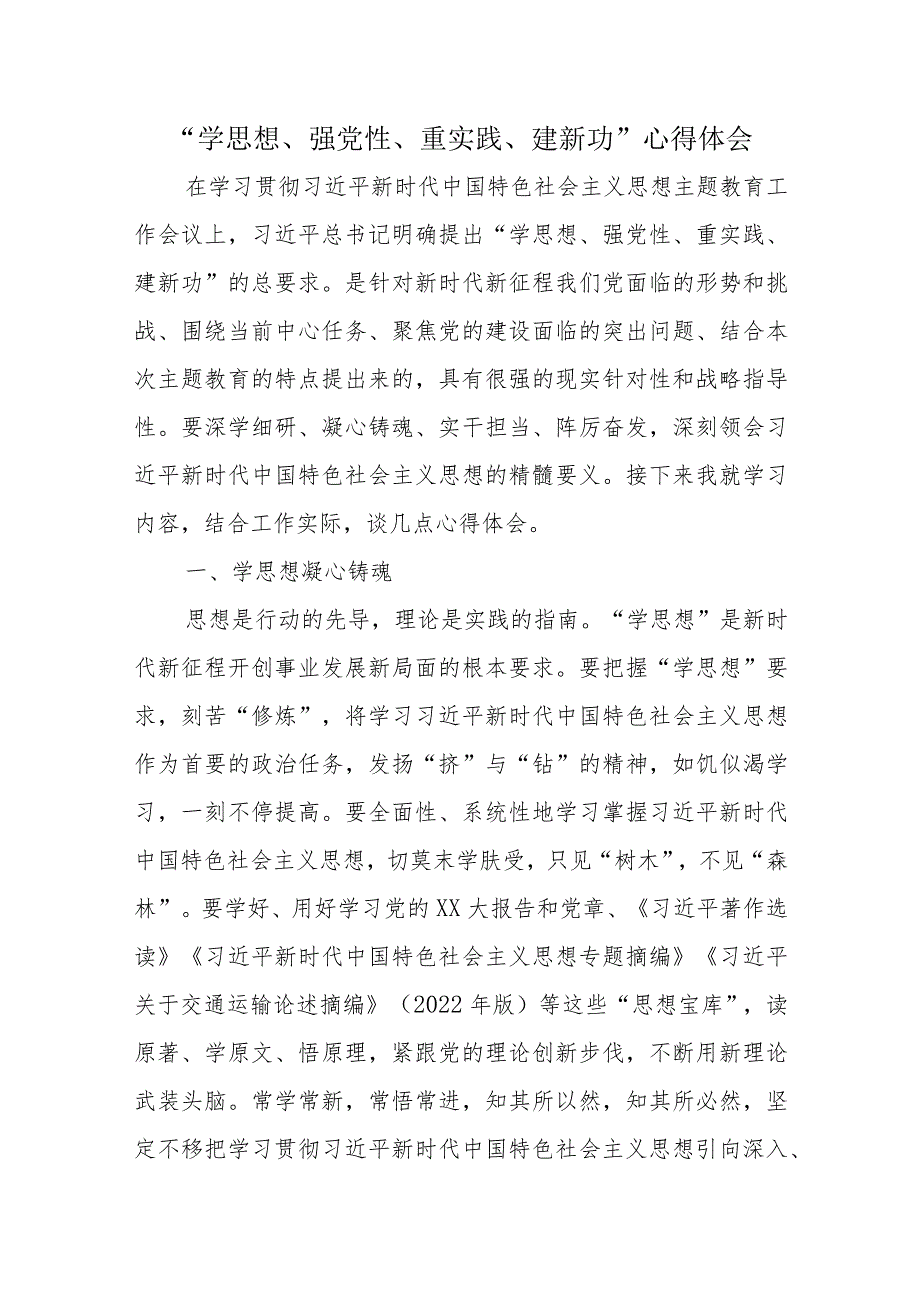 “学思想、强党性、重实践、建新功”心得体会
在学习贯彻习近平新时代中国特色社会主义思想主题教育工
作会议上，习近平总书记明确提出“学思想、强党性、重实践、
建新功”的总要求。是针对新时代新征程我们党面临的形势和挑
战、围绕当前中心任务、聚焦党的建设面临的突出问题、结合本
次主题教育的特点提出来的，具有很强的现实针对性和战略指导
性。要深学细研、凝心铸魂、实干担当、阵厉奋发，深刻领会习
近平新时代中国特色社会主义思想的精髓要义。接下来我就学习
内容，结合工作实际，谈几点心得体会。
一、学思想凝心铸魂
思想是行动的先导，理论是实践的指南。“学思想”是新时
代新征程开创事业发展新局面的根本要求。要把握“学思想”要
求，刻苦“修炼”，将学习习近平新时代中国特色社会主义思想
作为首要的政治任务，发扬“挤”与“钻”的精神，如饥似渴学
习，一刻不停提高。要全面性、系统性地学习掌握习近平新时代
中国特色社会主义思想，切莫末学肤受，只见“树木”，不见“森
林”。要学好、用好学习党的XX大报告和党章、《习近平著作选
读》《习近平新时代中国特色社会主义思想专题摘编》《习近平
关于交通运输论述摘编》（2022年版）等这些“思想宝库”，读
原著、学原文、悟原理，紧跟党的理论创新步伐，不断用新理论
武装头脑。常学常新，常悟常进，知其所以然，知其所必然，坚
定不移把学习贯彻习近平新时代中国特色社会主义思想引向深入、